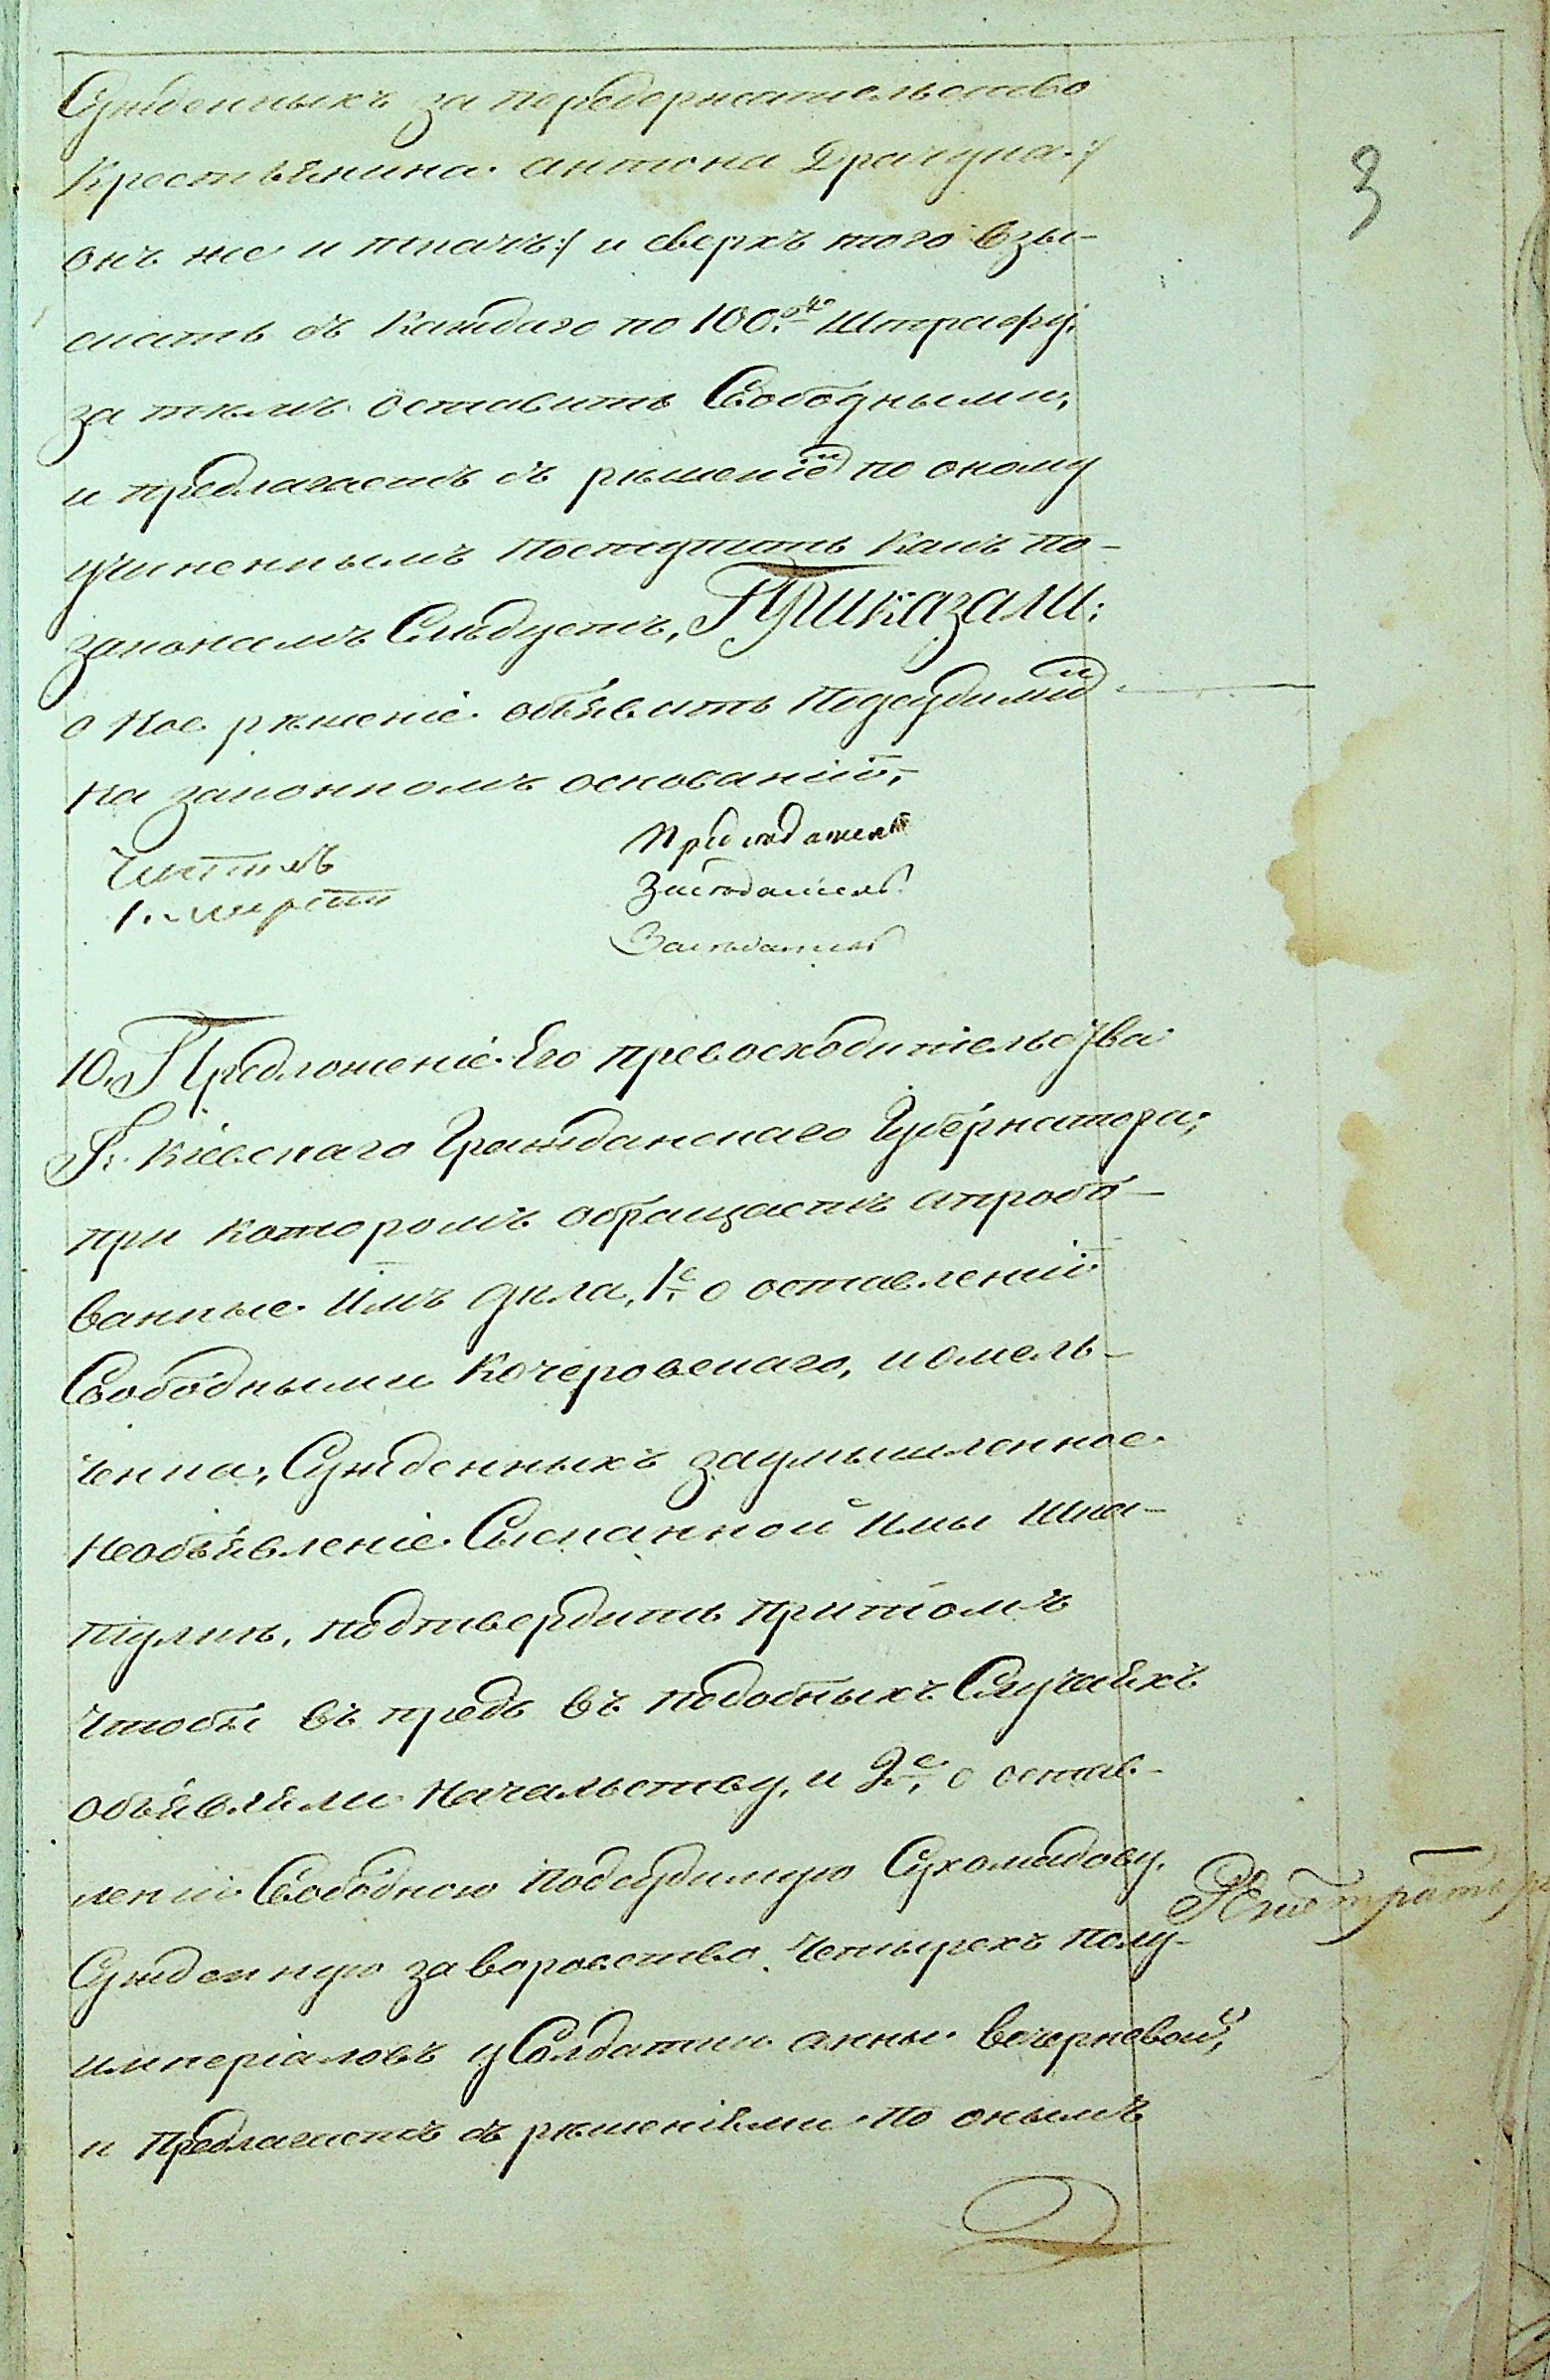 3
Сужденныхъ за передержательство
Крестьянина антона Драчука :/
онъ же и ткачъ :/ и сверхъ того взы-
скать съ каждаго по 100. штрафу,
за темъ оставить Свободными,
и предлагаетъ съ решенiем по оному
учиненнымъ поступить какъ по-
законамъ Следуетъ, Приказали:
о кое решенiе объявить подсудимы
на законномъ основанiи,
Председатель
Заседатель
Заседатель
10. Предложенiе Его превосходительства
Г: Кiевскаго Гражданскаго Губернатора,
при которомъ обращаетъ апробо-
ванные имъ дела, 1е о оставленiи
Свободными Кочеровскаго, и омель-
ченка, Сужденныхъ заумышленное
необъявленiе Сысканной имы шка-
тулки, подтвердить притомъ
чтобы въ предь въ подобныхъ Случаяхъ
объявляли Начальству, и 2е, о остав-
ленiи Свободною подсудимую Сухомадову,
Сужденную за воровство Четырехъ полу-
имперiаловъ у Солдатки анны вечерковой,
и предлагаетъ съ решенiями по онымъ
Регистраторъ